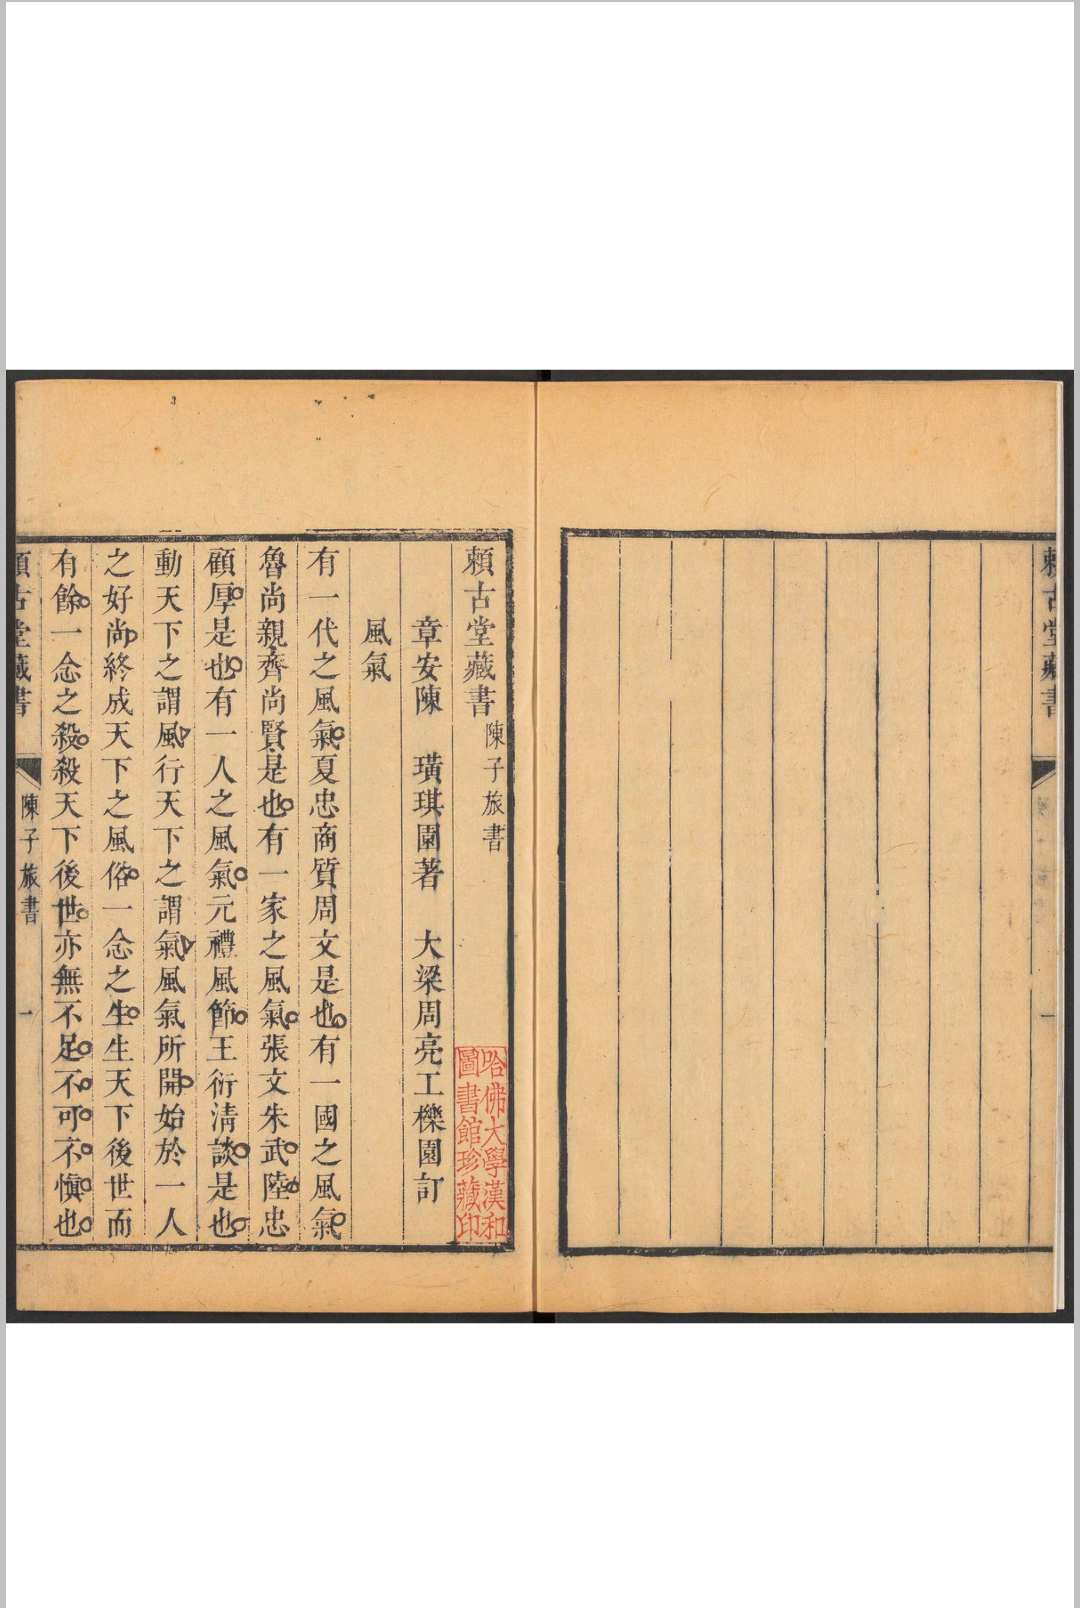 賴古堂藏書
一
賴古堂藏書 陳子旅書
章安陳 璜琪園著 大梁周亮工櫟園訂
風氣
有一代之風氣夏忠商質周文是也有一國之風氣
魯尚親齊尚賢是也有一家之風氣張文朱武陸忠
顧厚是也有一人之風氣元禮風節王衍淸談是也
動天下之謂風行天下之謂氣風氣所開始於一人
之好尚終成天下之風俗一念之生生天下後世而
有餘一念之殺殺天下後世亦無不足不可不慎也
賴古堂藏書 陳子旅書 一
哈佛大學漢和
圖書館珍藏印